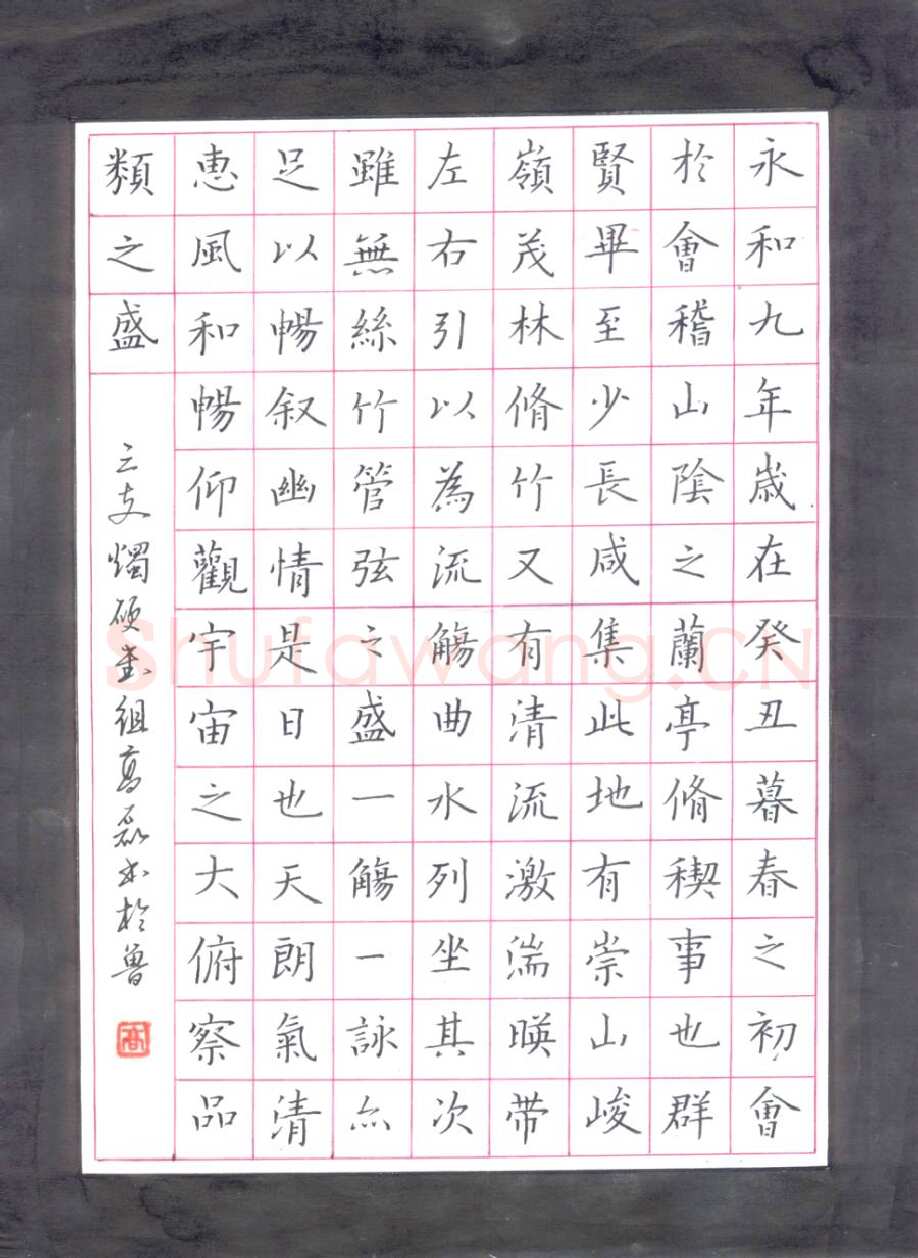 永和九年歲在癸丑暮春之初會
於會稽山陰之蘭亭脩稧事也群
賢畢至少長咸集此地有崇山峻
嶺茂林脩竹又有清流激湍暎带
左右引以為流觴曲水列坐其次
雖無絲竹管弦之盛一觴一詠亦
足以暢叙幽情是日也天朗氣清
惠風和暢仰觀宇宙之大俯察品
類之盛
三支燭硬書組高磊书於魯
高
Shufawang.CN